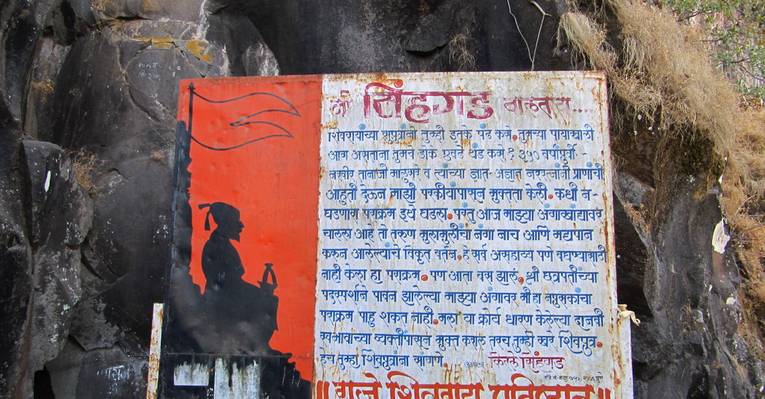 मी सिंहगड बोलतोय...
शिवरायाच्या सुपुत्रांनो तुम्ही इतके षंढ कसे. तुमच्या पायाखाली
आग असताना तुमचे डोके एवढे थंड कसे? ३५० वर्षांपूर्वी
नरवीर तानाजी मालुसरे व त्यांच्या ज्ञात अज्ञात नररत्नांनी प्राणांची
आहुती देऊन माझी परकीयांपासून मुक्तता केली. कधी न
घडणारा पराक्रम इथे घडला. परंतु आज माझ्या अंगाखांद्यावर
चालला आहे तो तरुण मुलामुलींचा नंगा नाच आणि मद्यपान
करून आलेल्यांचे विकृत वर्तन, हे सर्व असह्य पण बघण्यासाठी
नाही केला हा पराक्रम. पण आता बस झालं. श्री छत्रपतींच्या
पदस्पर्शाने पावन झालेल्या माझ्या अंगावर मी हा नपुंसकांचा
पराक्रम पाहु शकत नाही. मला या क्रौर्य धारण केलेल्या दानवी
स्वभावाच्या व्यक्तींपासून मुक्त कराल तरच तुम्ही खरे शिवपुत्र.
हेच तुम्हा शिवपुत्रांना मागणे. किल्ले सिंहगड
॥ राजे शिवराय प्रतिष्ठान ॥